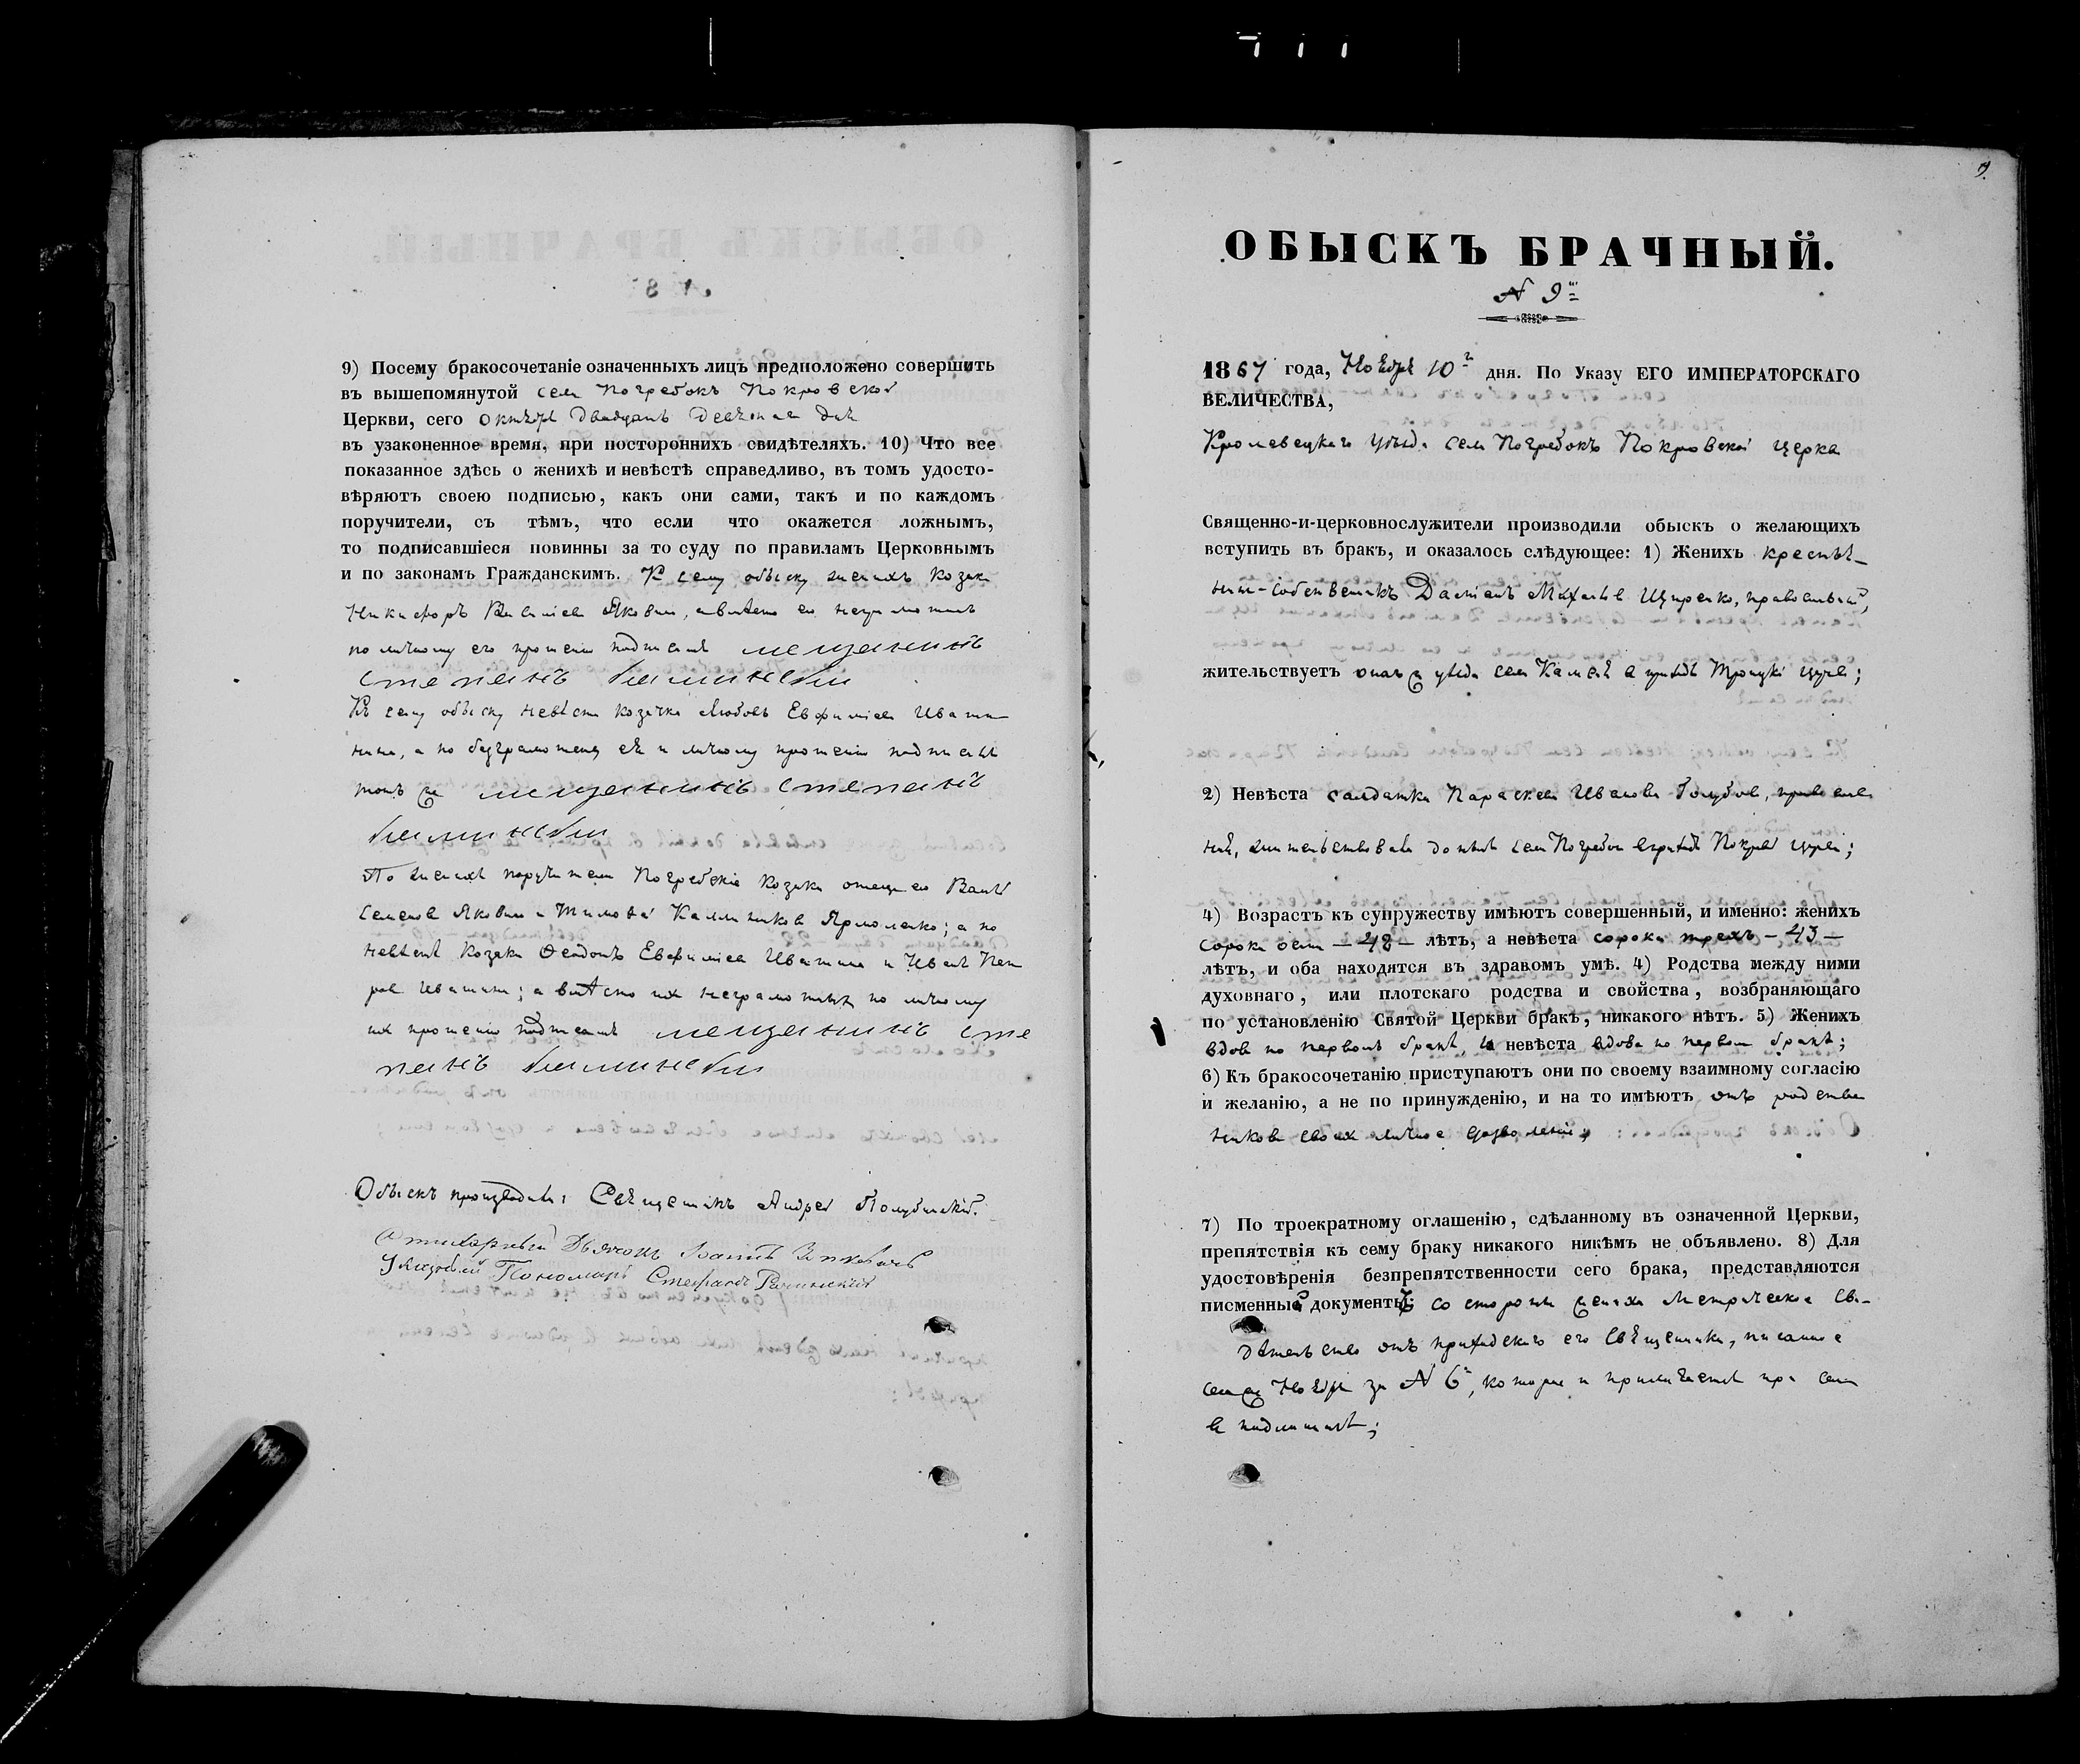 9) Посему бракосочетаніе означенныхъ лицъ предположено совершить
въ вышепомянутой села Погребокъ Покровской
Церкви, сего октября двадцать девятаго дня
въ узаконенное время, при постороннихъ свидѣтеляхъ. 10) Что все
показанное здѣсь о женихѣ и невѣстѣ справедливо, въ томъ удосто-
вѣряютъ своею подписью, какъ они сами, такъ и по каждомъ
поручители, съ тѣмъ, что если что окажется ложнымъ,
то подписавшіеся повинны за то суду по правиламъ Церковнымъ
и по законамъ Гражданскимъ. К сему обыску женихъ козакъ
Никифоръ
по личному его прошенію подписалъ мещанинъ
степанъ
Къ сему обыску невѣста козачка Любовь Евфиміева Иваши
на, а по безграмотству ея и личному прошенію подписалъ
тотъ же мещанинъ степанъ
По женихѣ поручители Погребскіе козаки отецъ его
Семеновъ Яковин и Тимофѣй Каллиниковъ Ярмоленко; а по
невѣстѣ козаки Ѳеодотъ Евфиміевъ Ивашина и Иванъ Пет
ров Ивашина; а вмѣсто их неграмотных по личному
их прошенію подписалъ мещанинъ сте
панъ
Обыскъ производили: Священникъ Андрей Голубинскій.
Стихарный Дьячокъ Іоаннъ
Указный Пономарь Стефанъ Рачинскій
9.
ОБЫСКЪ БРАЧНЫЙ.
N 9й
1867 года, Ноября 10го дня. По Указу ЕГО ИМПЕРАТОРСКАГО
ВЕЛИЧЕСТВА,
Кролевецкаго уѣзда села Погребокъ Покровской церкви
Священно-и-церковнослужители производили обыскъ о желающихъ
вступить въ бракъ, и оказалось слѣдующее: 1) Женихъ крестья-
нинъ-собственикъ Даміанъ Михайловъ Щиренко, православный,
жительствуетъ онаго же уѣзда села Камень в приходѣ Троицкой церкви;
2) Невѣста солдатка Параскева Иванова Голубова, православ
ная, жительствовала донынѣ села Погребокъ в приходѣ Покров церкви;
4) Возрастъ къ супружеству имѣютъ совершенный, и именно: женихъ
сорока осми — 48 — лѣтъ, а невѣста сорока трехъ — 43 —
лѣтъ, и оба находятся въ здравомъ умѣ. 4) Родства между ними
духовнаго, или плотскаго родства и свойства, возбраняющаго
по установленію Святой Церкви бракъ, никакого нѣтъ. 5) Женихъ
вдов по первомъ бракѣ, а невѣста вдова по первом бракѣ;
6) Къ бракосочетанію приступаютъ они по своему взаимному согласію
и желанію, а не по принужденію, и на то имѣютъ отъ родствен
никовъ своих личное дозволеніе;
7) По троекратному оглашенію, сдѣланному въ означенной Церкви,
препятствія къ сему браку никакого никѣмъ не объявлено. 8) Для
удостовѣренія безпрепятственности сего брака, представляются
писменные документы: со стороны жениха Метрическое сви-
дѣтельство отъ приходскаго его Священника, писанное
сего же Ноября за N 6м, которое и прилагается при сем
в подлинникѣ;